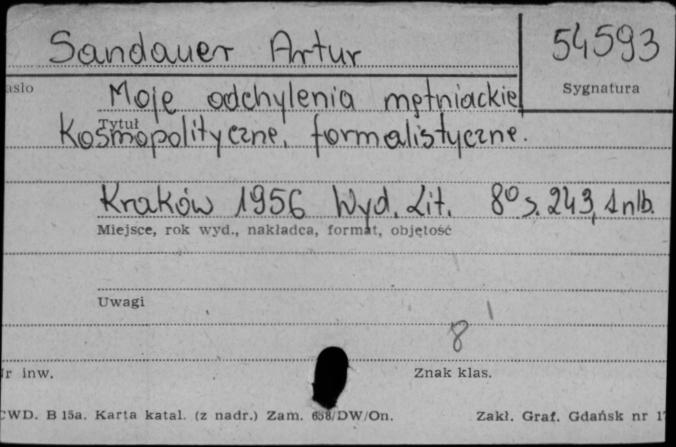 Sandauer Artur
54593
asło
Sygnatura
Moje odchylenia mętniackie
Tytuł
Kosmopolityczne, formalistyczne.
Kraków 1956 Wyd. Lit. 8° s. 243, 1 nlb.
Miejsce, rok wyd., nakładca, format, objętość
Uwagi
8
r inw.
Znak klas.
CWD. B 15a. Karta katal. (z nadr.) Zam. 658/DW/On.
Zakł. Graf. Gdańsk nr 1